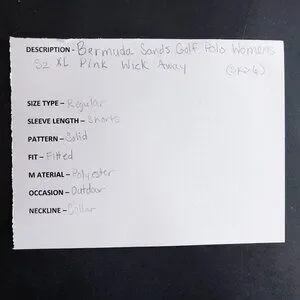 DESCRIPTION - Bermuda Sands Golf Polo Womens
Sz XL Pink Wick Away
SIZE TYPE – Regular
SLEEVE LENGTH – Shorts
PATTERN – Solid
FIT – Fitted
M ATERIAL – Polyester
OCCASION – Outdoor
NECKLINE – Collar